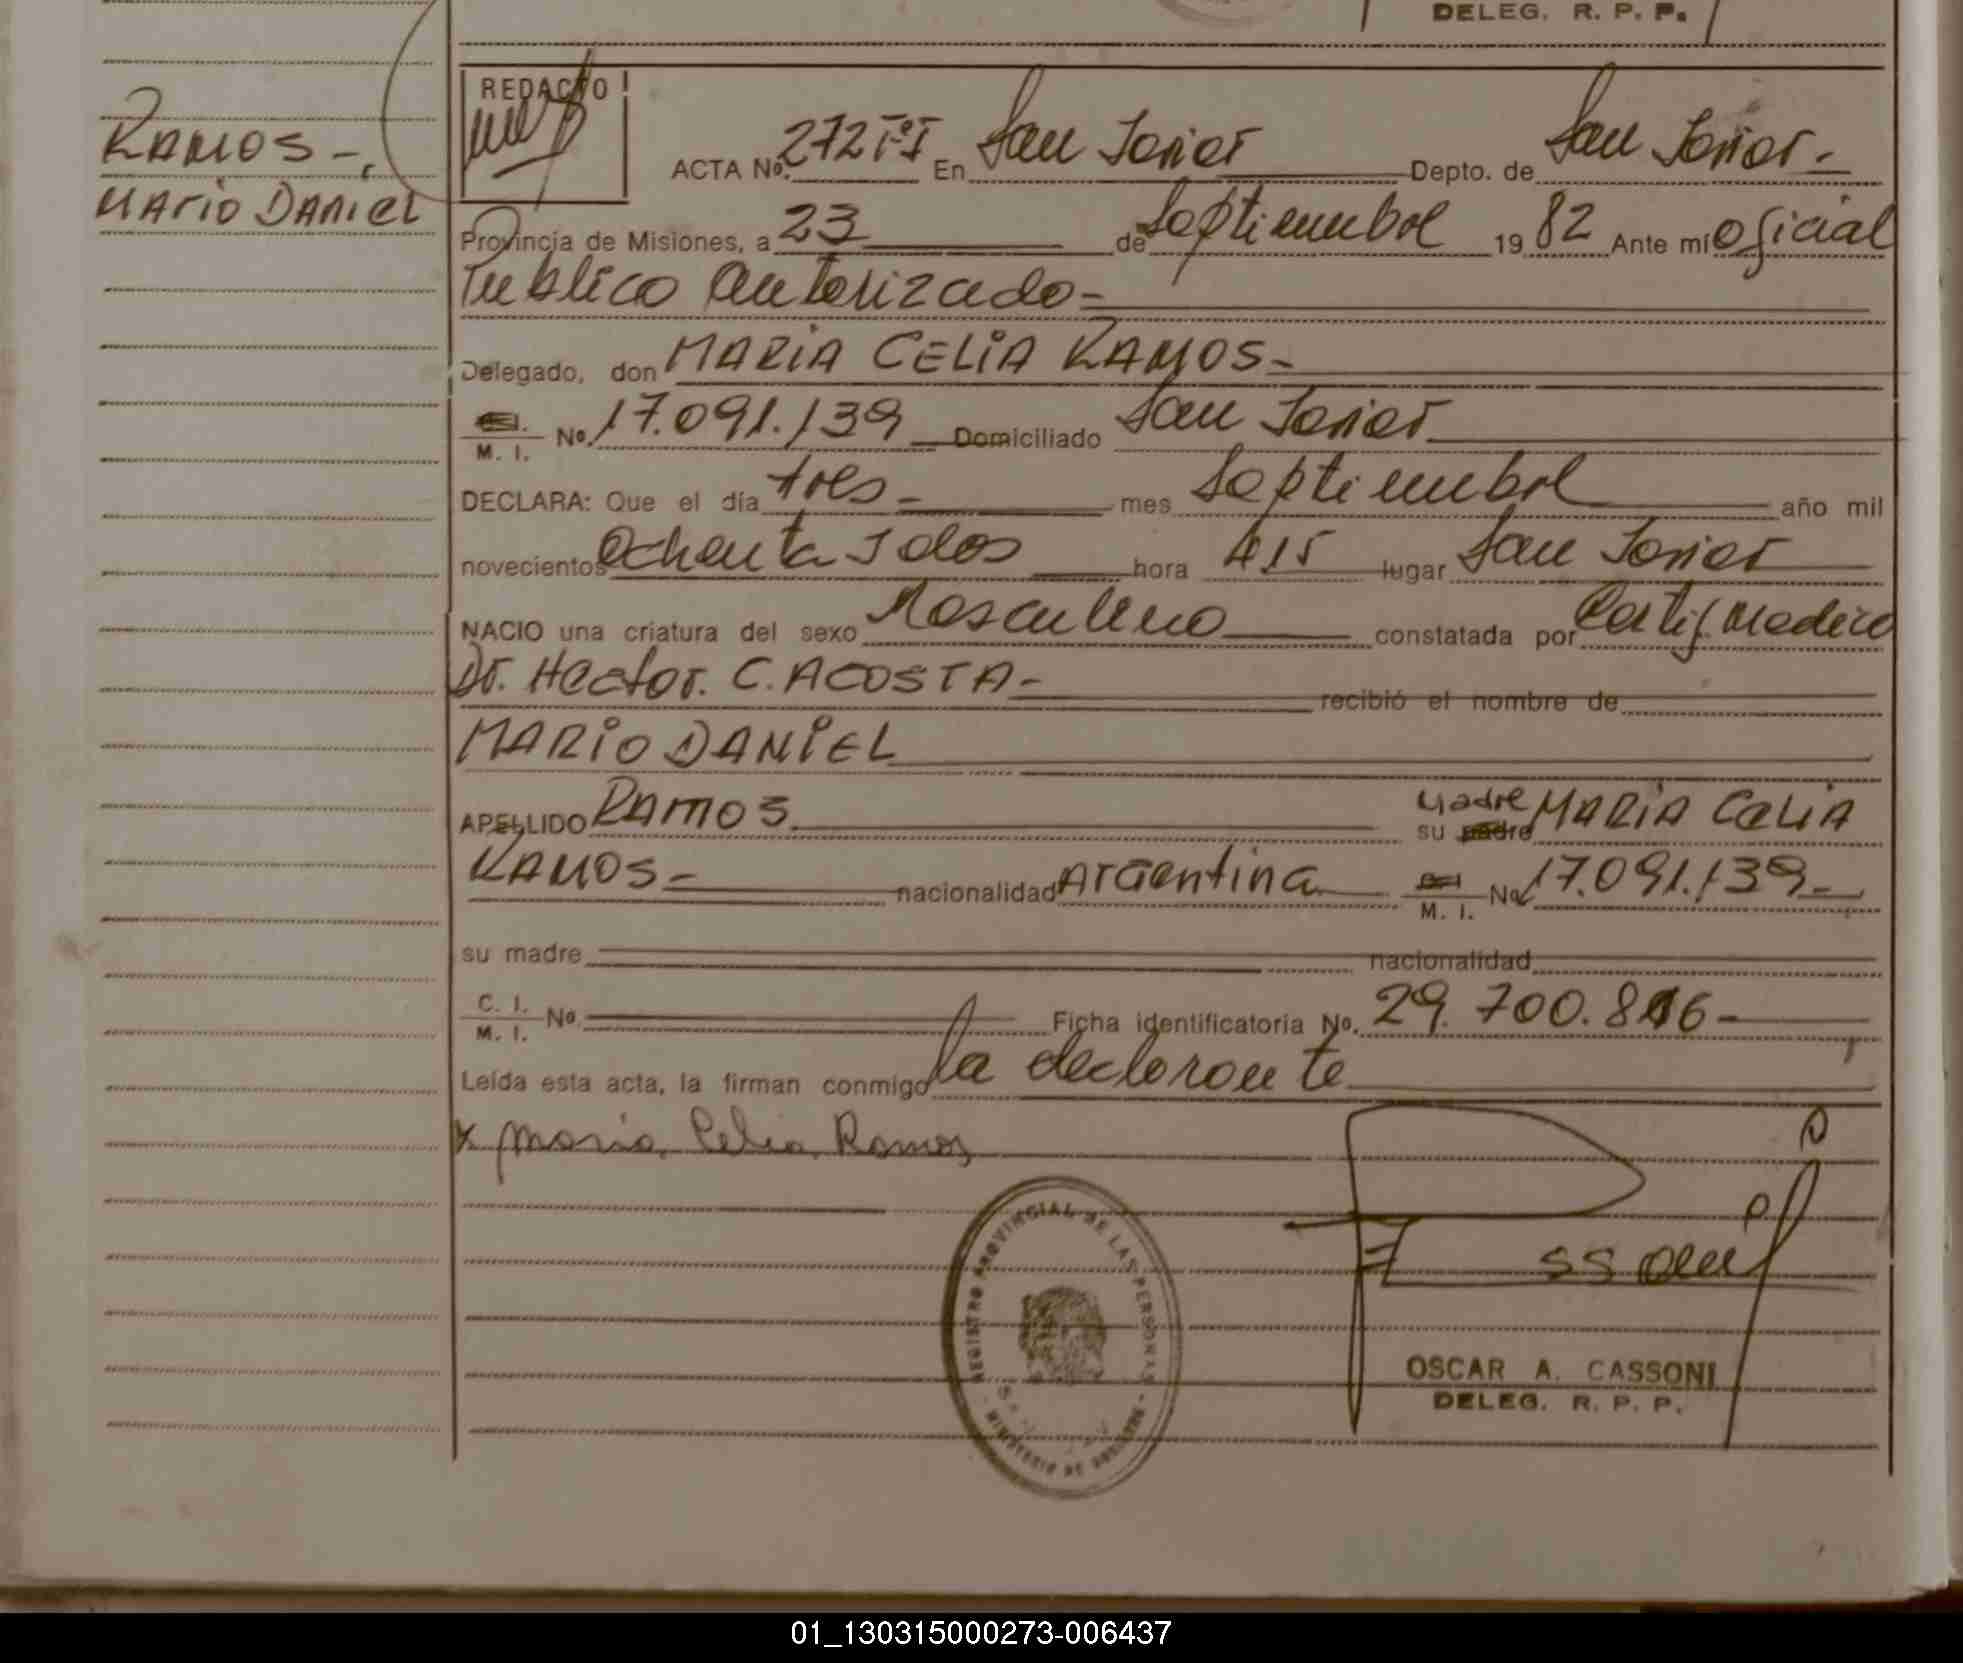 DELEG. R. P. P.
REDACTO
RAMOS -
MArio DANiEL
ACTA No. 272 Tº I En San Javier Depto. de San Javier -
Provincia de Misiones, a 23 de Septiembre 19 82 Ante mí Oficial
Publico Autorizado -
Delegado, don MARIA CELIA RAMOS -
M. I. No. 17.091.139 Domiciliado San Javier
DECLARA: Que el día tres - mes Septiembre año mil
novecientos Ochenta y dos hora 415 lugar San Javier
NACIO una criatura del sexo Masculino constatada por Certif. Medico
Dr. Hector. C. ACOSTA - recibió el nombre de
MARIO DANIEL
APELLIDO RAMOS su Madre MARIA CELIA
RAMOS - nacionalidad Argentina M. I. No. 17.091.139 -
su madre nacionalidad
C. I. / M. I. No. Ficha identificatoria No. 29.700.816 -
Leída esta acta, la firman conmigo la declarante
x Maria Celia Ramos
REGISTRO PROVINCIAL DE LAS PERSONAS
MINISTERIO DE GOBIERNO
OSCAR A. CASSONI
DELEG. R. P. P.
01_130315000273-006437